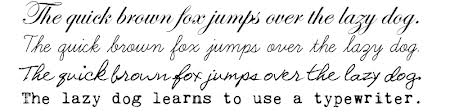 The quick brown fox jumps over the lazy dog.
The quick brown fox jumps over the lazy dog.
The quick brown fox jumps over the lazy dog.
The lazy dog learns to use a typewriter.